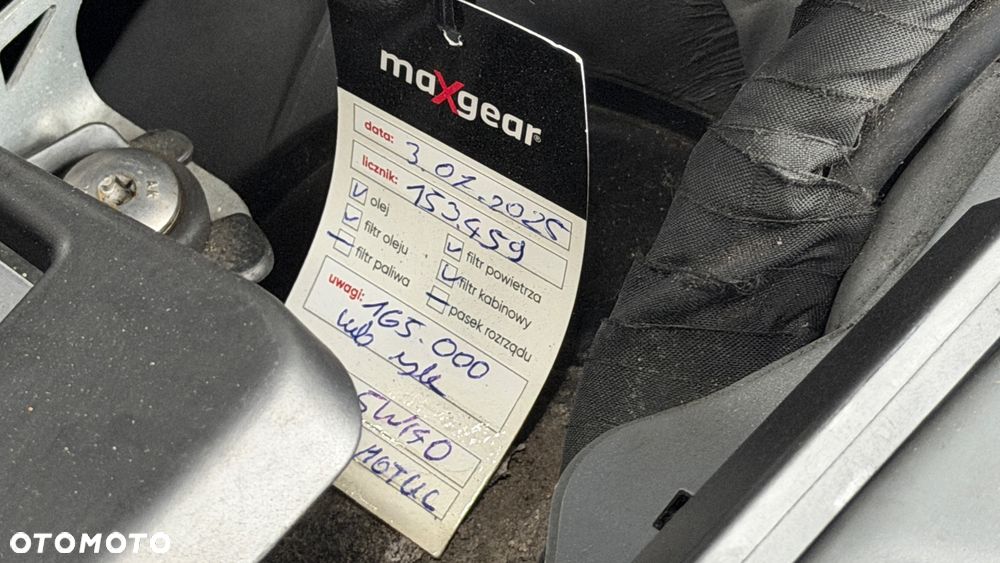 maxgear
data: 3.01.2025
licznik: 153.459
olej
filtr oleju
filtr paliwa
filtr powietrza
filtr kabinowy
pasek rozrządu
uwagi: 165.000
lub
5W40
MOTUL
OTOMOTO